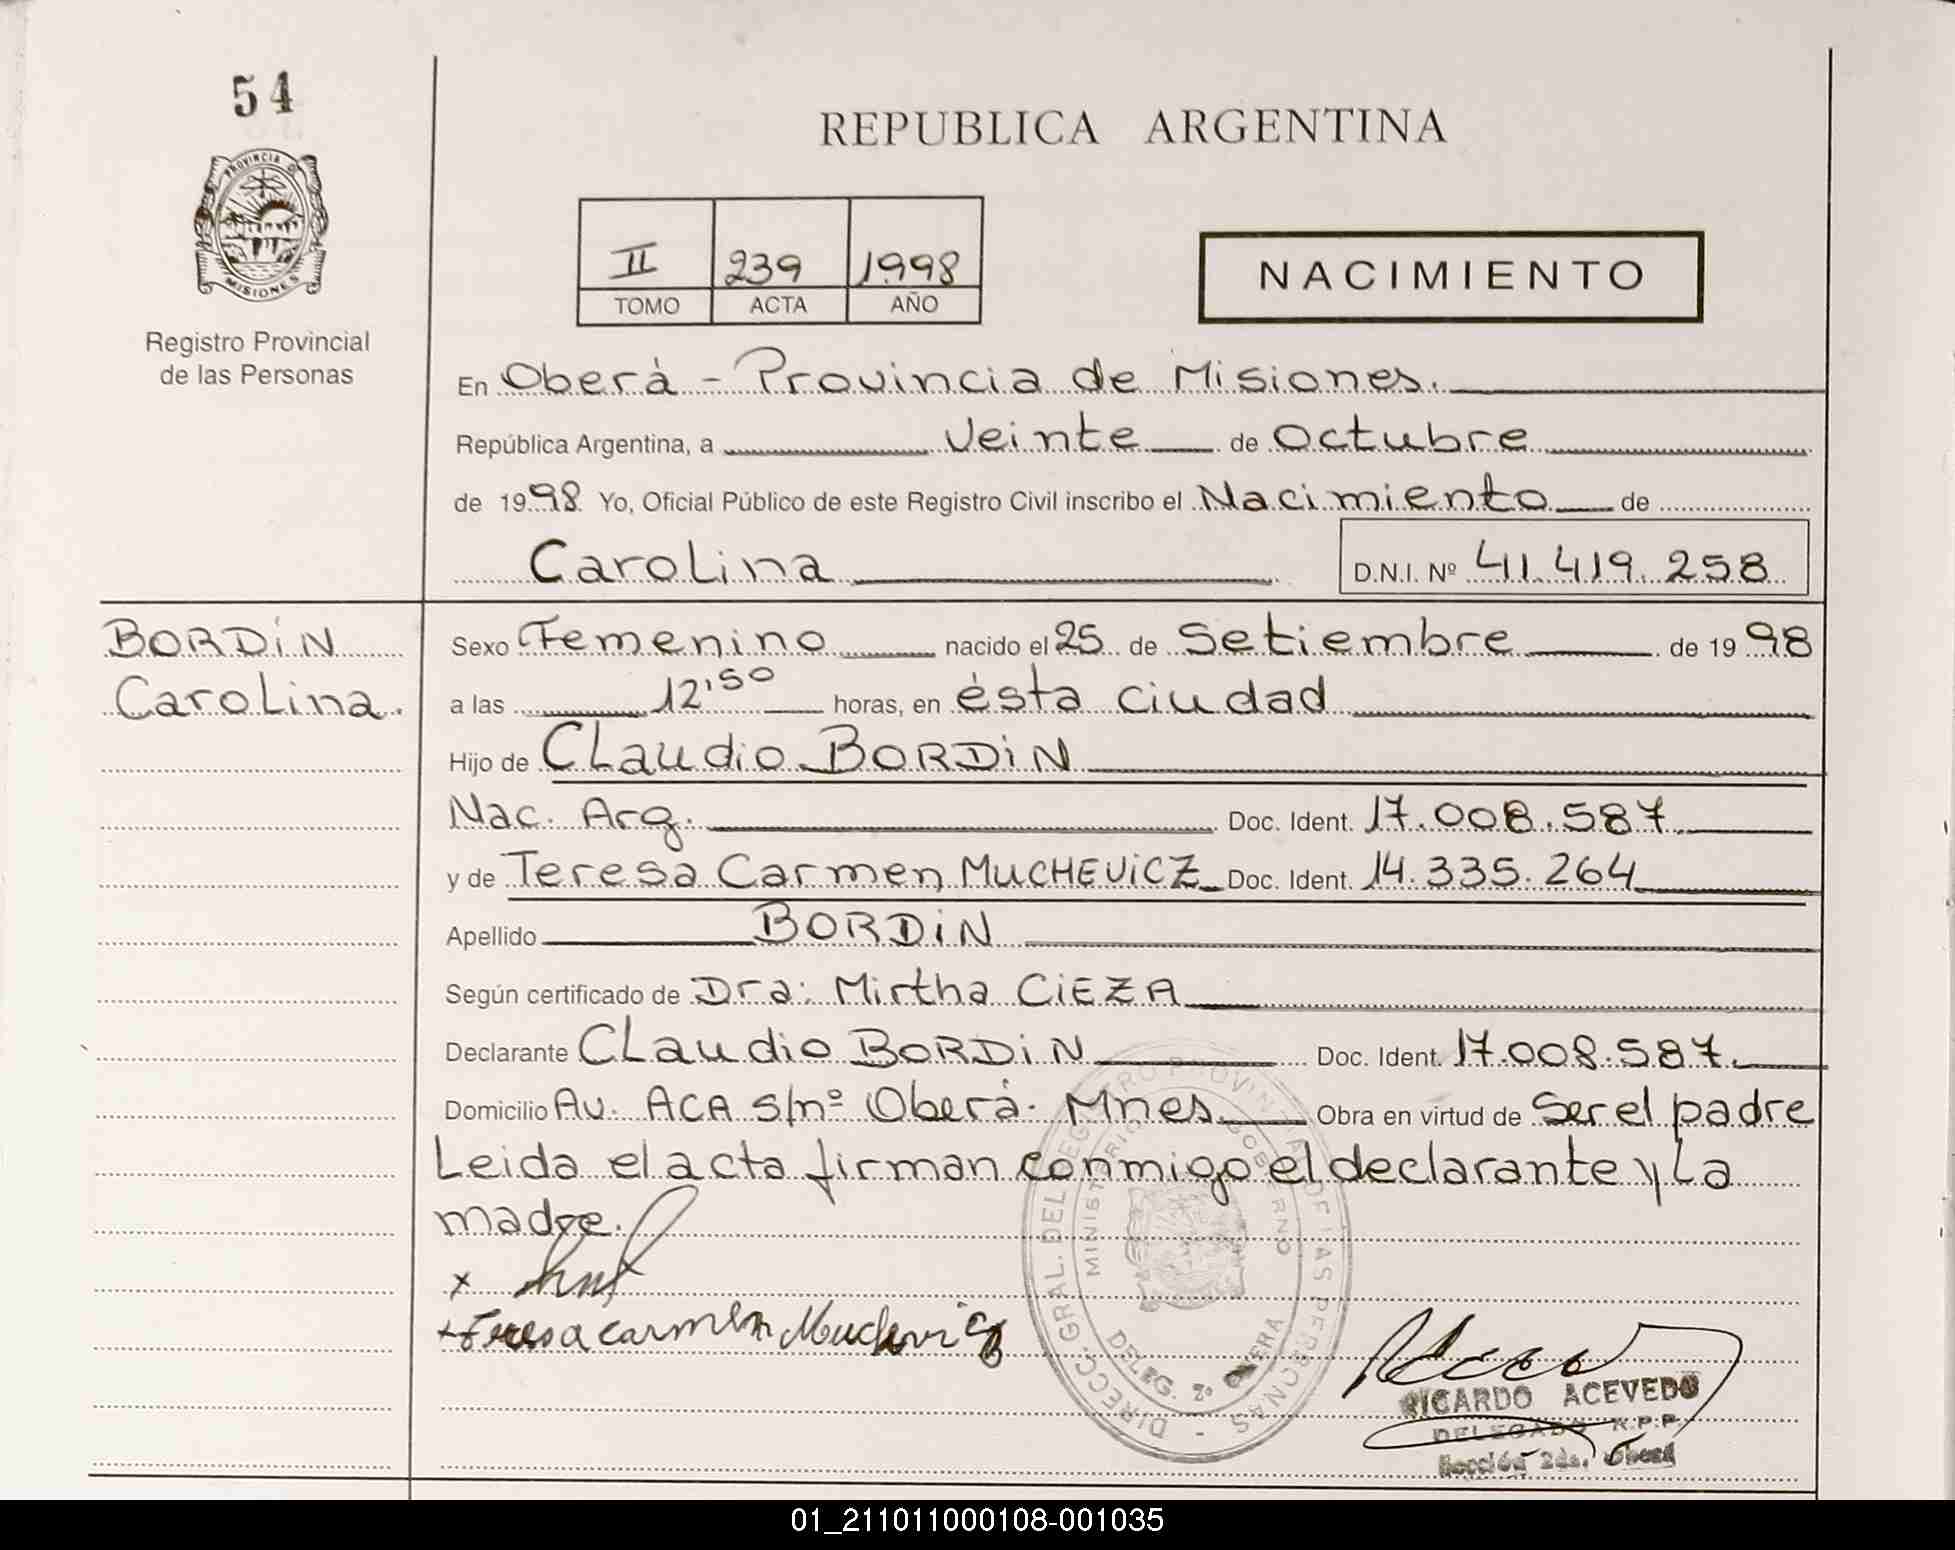 54
PROVINCIA D
MISIONES
Registro Provincial
de las Personas
REPUBLICA ARGENTINA
II 239 1998
TOMO ACTA AÑO
NACIMIENTO
En Oberà - Provincia de Misiones.
República Argentina, a Veinte de Octubre
de 1998 Yo, Oficial Público de este Registro Civil inscribo el Nacimiento de
Carolina D.N.I. Nº 41.419.258
BORDIN
Carolina.
Sexo Femenino nacido el 25 de Setiembre de 1998
a las 12,50 horas, en ésta ciudad
Hijo de Claudio BORDIN
Nac. Arg. Doc. Ident. 17.008.587
y de Teresa Carmen MUCHEVICZ Doc. Ident. 14.335.264
Apellido BORDIN
Según certificado de Dra: Mirtha CIEZA
Declarante Claudio BORDIN Doc. Ident. 17.008.587.
Domicilio Av. ACA s/nº Oberà. Mnes. Obra en virtud de Ser el padre
Leida el acta firman conmigo el declarante y la
madre.
x
+Teresa carmen Muchevicz
DIRECC. GRAL. DEL REGISTRO PROVINCIAL DE LAS PERSONAS -
MINISTERIO GOBIERNO
DELEG. 2ª OBERA
RICARDO ACEVEDO
DELEGADO R.P.P.
Sección 2da. Oberá
01_211011000108-001035